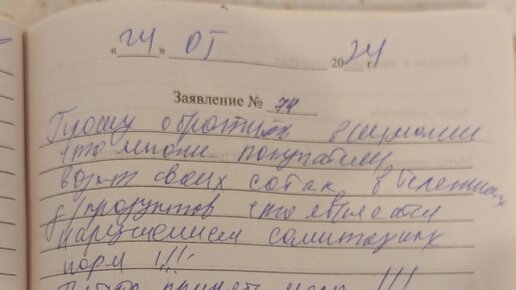 «24» 07 2024 г.
Заявление № 74
Прошу обратить внимание
что многие покупатели
возят своих собак в тележках
д/продуктов что является
нарушением санитарных
норм !!!
принять меры !!!